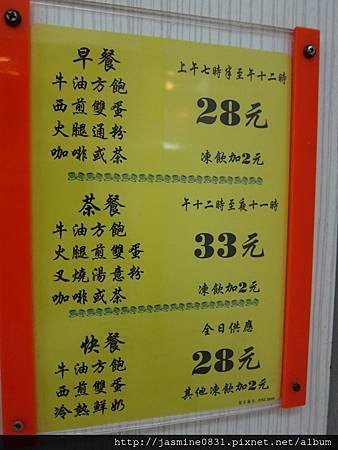 早餐
牛油方飽
西煎雙蛋
火腿通粉
咖啡或茶
上午七時半至午十二時
28元
凍飲加2元
茶餐
牛油方飽
火腿煎雙蛋
叉燒湯意粉
咖啡或茶
午十二時至夜十一時
33元
凍飲加2元
快餐
牛油方飽
西煎雙蛋
冷熱鮮奶
全日供應
28元
其他凍飲加2元
http://jasmine0831.pixnet.net/album